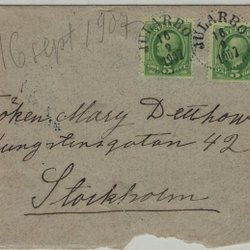 16 sept 1907
JULARBO 16 9 1907
JULARBO 16 9 1907
5 5
öken Mary Detthow
ungstensgatan 42
Stockholm